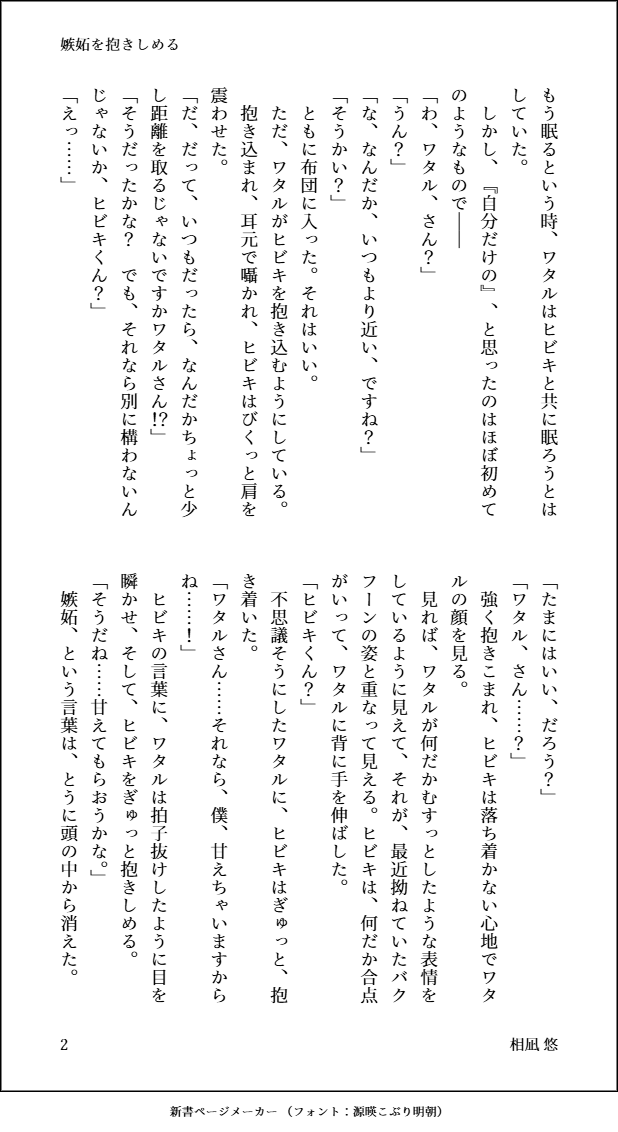 嫉妬を抱きしめる
もう眠るという時、ワタルはヒビキと共に眠ろうとは
していた。
　しかし、『自分だけの』、と思ったのはほぼ初めて
のようなもので――
「わ、ワタル、さん？」
「うん？」
「な、なんだか、いつもより近い、ですね？」
「そうかい？」
　ともに布団に入った。それはいい。
　ただ、ワタルがヒビキを抱き込むようにしている。
　抱き込まれ、耳元で囁かれ、ヒビキはびくっと肩を
震わせた。
「だ、だって、いつもだったら、なんだかちょっと少
し距離を取るじゃないですかワタルさん!?」
「そうだったかな？　でも、それなら別に構わないん
じゃないか、ヒビキくん？」
「えっ……」
「たまにはいい、だろう？」
「ワタル、さん……？」
　強く抱きこまれ、ヒビキは落ち着かない心地でワタ
ルの顔を見る。
　見れば、ワタルが何だかむすっとしたような表情を
しているように見えて、それが、最近拗ねていたバク
フーンの姿と重なって見える。ヒビキは、何だか合点
がいって、ワタルに背に手を伸ばした。
「ヒビキくん？」
　不思議そうにしたワタルに、ヒビキはぎゅっと、抱
き着いた。
「ワタルさん……それなら、僕、甘えちゃいますから
ね……！」
　ヒビキの言葉に、ワタルは拍子抜けしたように目を
瞬かせ、そして、ヒビキをぎゅっと抱きしめる。
「そうだね……甘えてもらおうかな。」
　嫉妬、という言葉は、とうに頭の中から消えた。
2
相凪 悠
新書ページメーカー（フォント：源暎こぶり明朝）